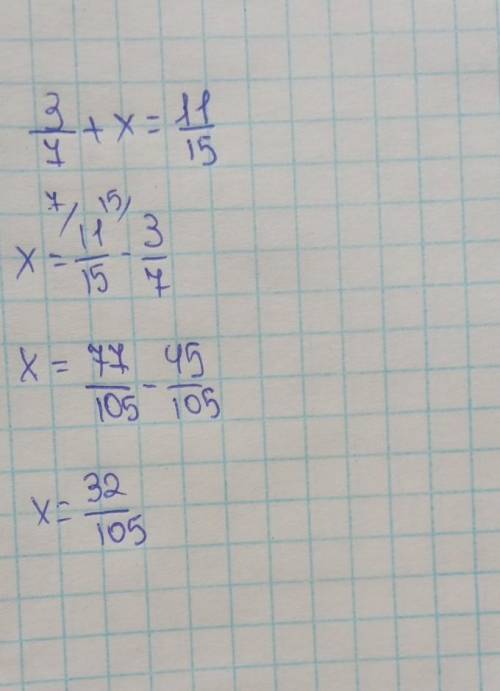 3/7 + x = 11/15
7/ 15/
x = 11/15 - 3/7
x = 77/105 - 45/105
x = 32/105